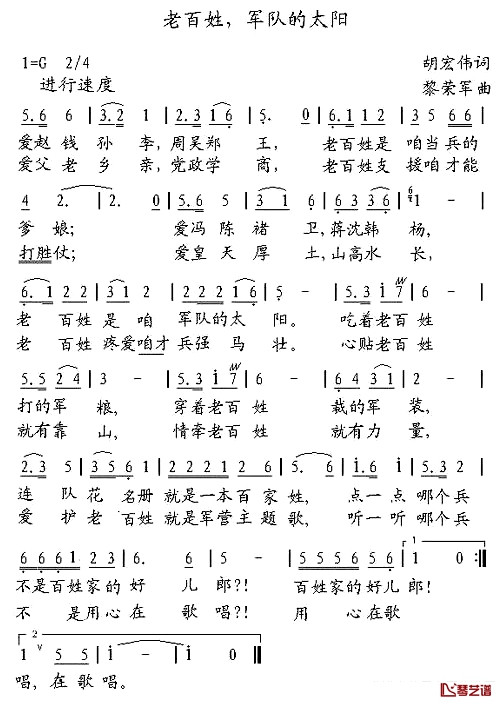 老百姓，军队的太阳
1=G 2/4 胡宏伟词
进行速度 黎荣军曲
5.6 6 | 3.2 1 | 2.3 1 6 | 5. 0 | 6.1 1 1 | 3 5 6 6 |
爱赵 钱 孙 李，周吴郑 王， 老百姓是 咱当兵的
爱父 老 乡 亲，党政学 商， 老百姓支 援咱才能
4 2. | 2. 0 | 5.6 5 | 3 1 6 | 3 6 3 6 | 1 - |
爹 娘； 爱冯 陈 褚 卫，蒋沈韩 杨，
打胜仗； 爱皇 天 厚 土，山高水 长，
6. 1 2 2 | 3 1 2 | 2 2 2 2 1 6 | 5 - | 5.3 i 7 |
老 百姓 是 咱 军队的太 阳。 吃着老百姓
老 百姓 疼爱咱才 兵强 马 壮。 心贴老百姓
5.5 2 4 | 3 - | 5.3 i 7 | 6 - | 6.4 3 1 | 2 - |
打的军 粮， 穿着老百 姓 裁的军 装，
就有靠 山， 情牵老百 姓 就有力 量，
2.3 5 | 3 5 6 1 | 2.2 3.2 | 7. 6 | 5 - | i.6 i | i.6 i |
连 队 花 名册 就是一本 百 家 姓， 点一点 哪个兵
爱 护 老 百姓 就是军营 主 题 歌， 听一听 哪个兵
6 6 6 1 | 2 3 | 6. 6 | 5 - | i i i 3 | 5 5 6 | 1 0 :|
不是百姓 家的 好 儿 郎？！ 百姓家的好儿 郎？！
不 是用心在 歌 唱？！ 用 心在歌
1 5 5 | 1 - | 1 0 ‖
唱，在歌 唱。
琴艺谱